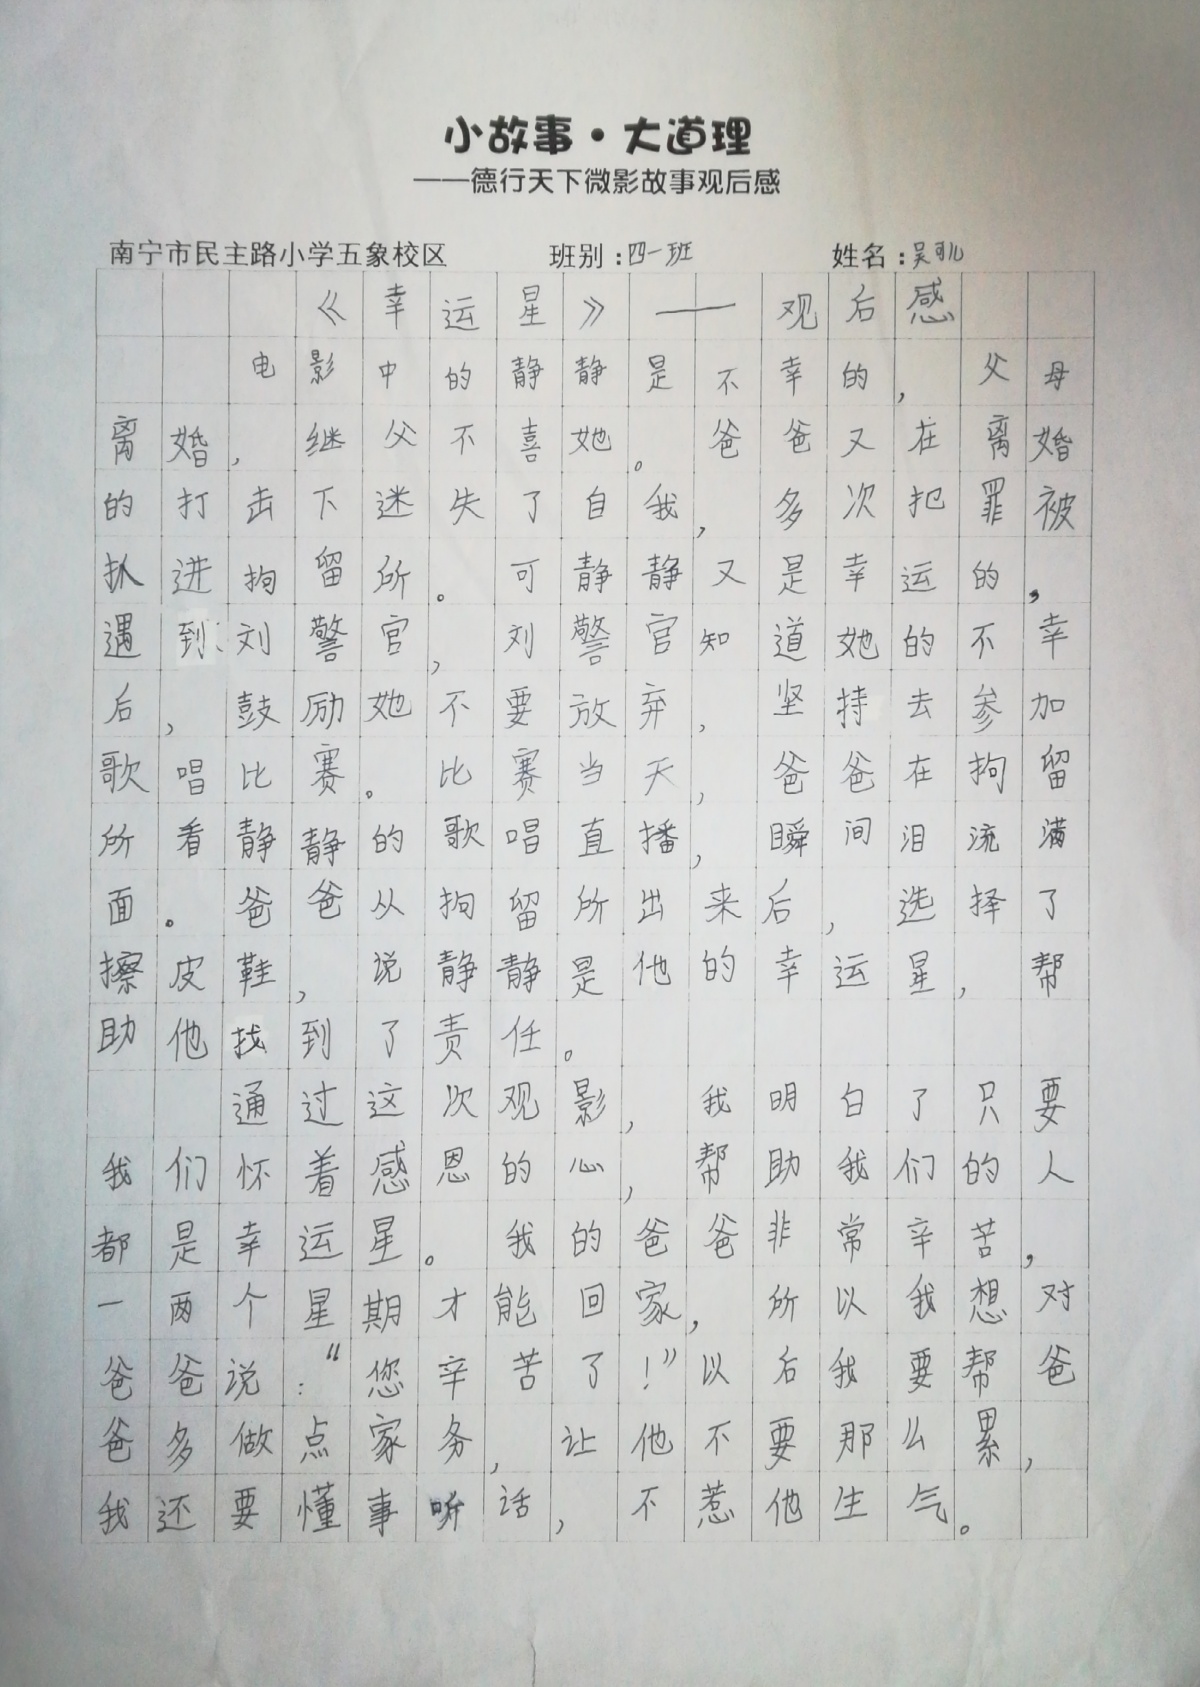 小故事·大道理
——德行天下微影故事观后感
南宁市民主路小学五象校区 班别：四一班 姓名：吴可儿
《幸运星》——观后感
电影中的静静是不幸的，父母
离婚，继父不喜她。爸爸又在离婚
的打击下迷失了自我，多次把罪被
抓进拘留所。可静静又是幸运的，
遇到刘警官，刘警官知道她的不幸
后，鼓励她不要放弃，坚持去参加
歌唱比赛。比赛当天，爸爸在拘留
所看静静的歌唱直播，瞬间泪流满
面。爸爸从拘留所出来后，选择了
擦皮鞋，说静静是他的幸运星，帮
助他找到了责任。
通过这次观影，我明白了只要
我们怀着感恩的心，帮助我们的人
都是幸运星。我的爸爸非常辛苦，
一两个星期才能回家，所以我想对
爸爸说：“您辛苦了！”以后我要帮爸
爸多做点家务，让他不要那么累，
我还要懂事听话，不惹他生气。